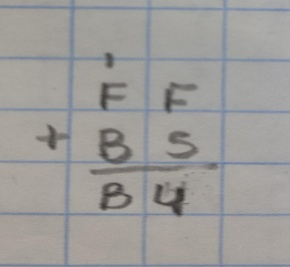 1
F F
+ B 5
B 4